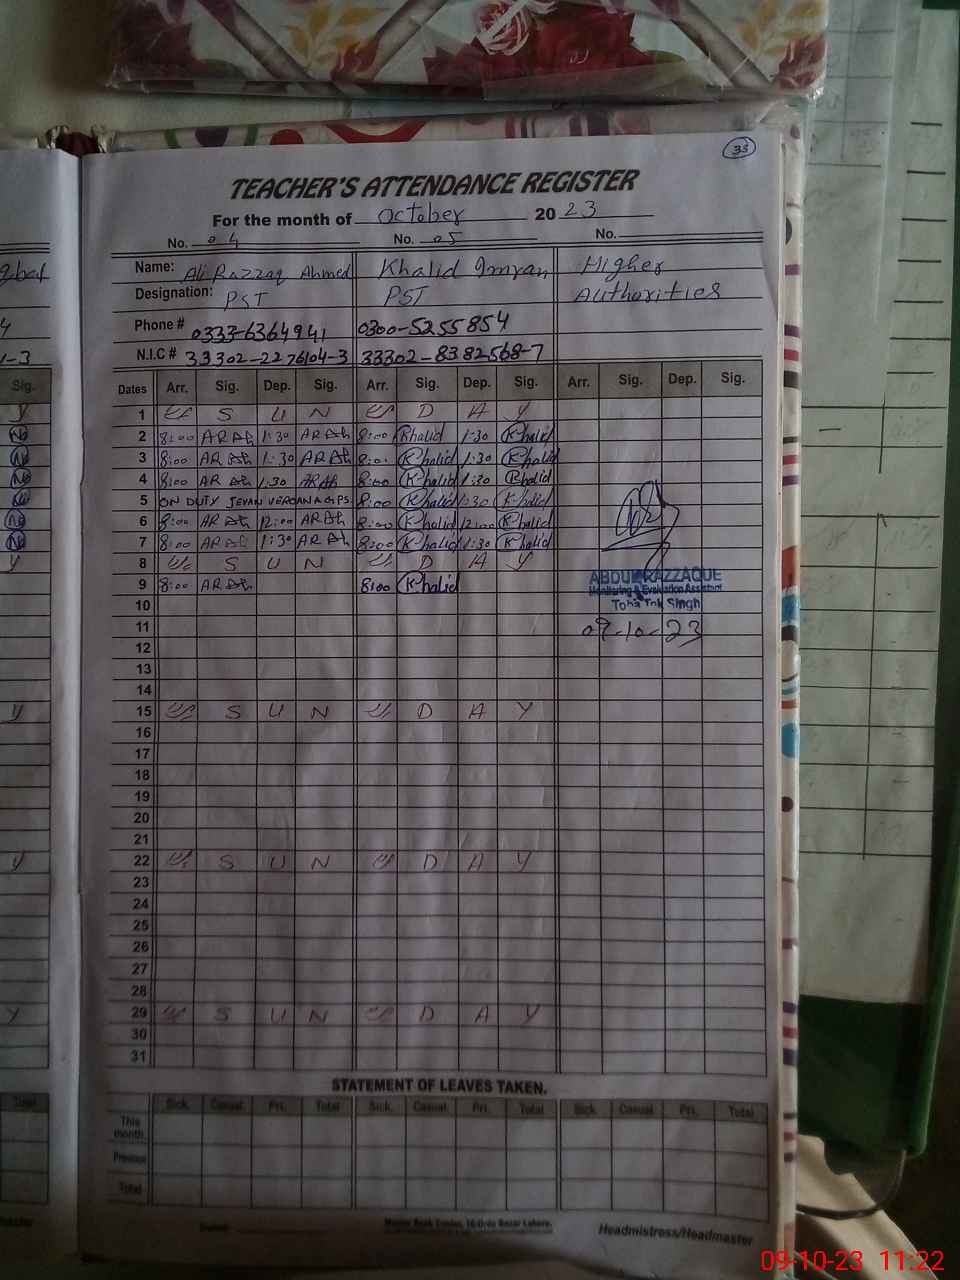 33
TEACHER'S ATTENDANCE REGISTER
For the month of October 2023
No. 04 No. 05 No.
Name: Ali Razzaq Ahmed Khalid Imran Higher
Designation: PST PST Authorities
Phone # 0333-6364941 0300-5255854
N.I.C # 33302-2276104-3 33302-8382568-7
Dates Arr. Sig. Dep. Sig. Arr. Sig. Dep. Sig. Arr. Sig. Dep. Sig.
1 S U N D A Y
2 8:00 1:30 8:00 Khalid 1:30 Khalid
3 8:00 1:30 8:00 Khalid 1:30 Khalid
4 8:00 1:30 8:00 Khalid 1:30 Khalid
5 ON DUTY 8:00 Khalid 1:30 Khalid
6 8:00 12:00 8:00 Khalid 12:00 Khalid
7 8:00 1:30 8:00 Khalid 1:30 Khalid
8 S U N D A Y
9 8:00 8:00 Khalid
ABDUL RAZZAQUE
Monitoring & Evaluation Assistant
Toba Tek Singh
09-10-23
10
11
12
13
14
15 S U N D A Y
16
17
18
19
20
21
22 S U N D A Y
23
24
25
26
27
28
29 S U N D A Y
30
31
STATEMENT OF LEAVES TAKEN.
Sick. Casual. Pri. Total Sick. Casual. Pri. Total Sick. Casual Pri. Total
This month
Previous
Total
Master Book Center, 16-Urdu Bazar Lahore.
Headmistress/Headmaster
09-10-23 11:22